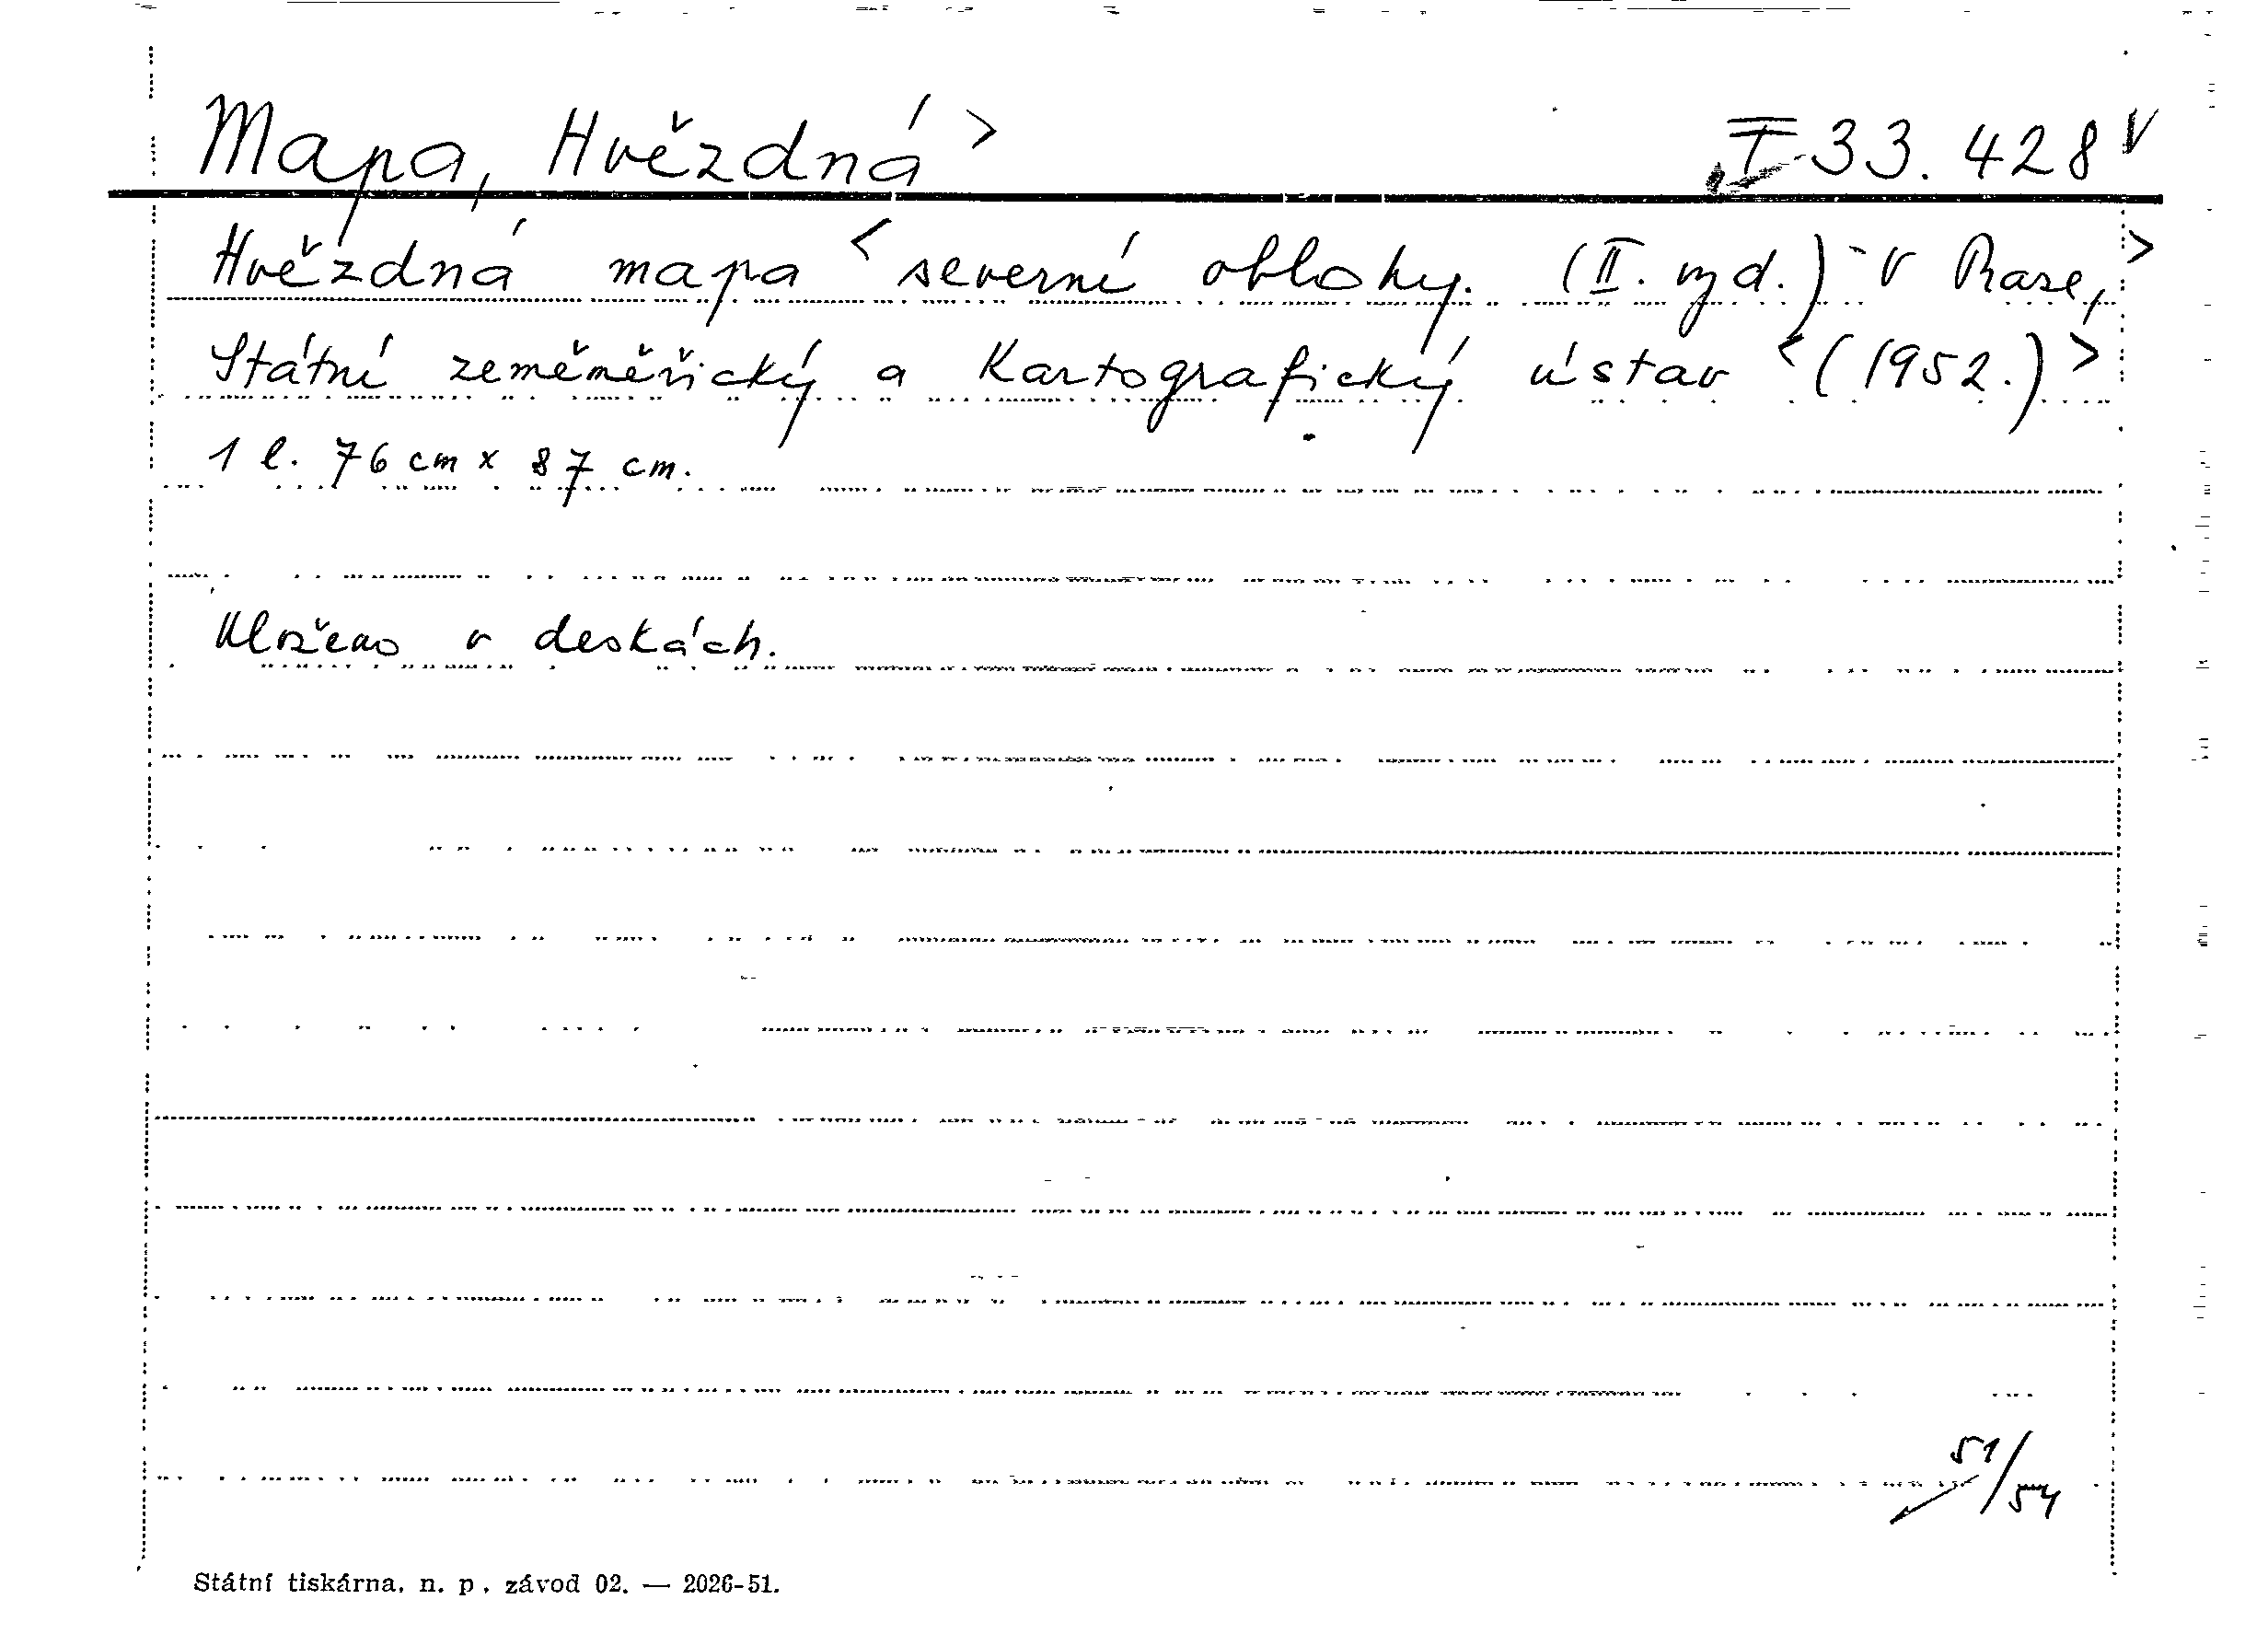 Mapa, Hvězdná > I 33.428 V
Hvězdná mapa < severní oblohy. (II. vyd.) - V Praze, >
Státní zeměměřický a Kartografický ústav < (1952.) >
1 l. 76 cm x 87 cm.
Uloženo v deskách.
51/54
Státní tiskárna, n. p. závod 02. — 2026-51.